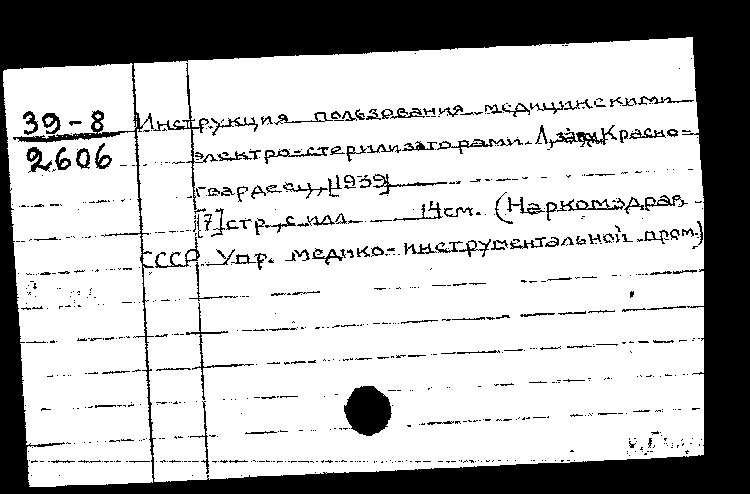 39-8
2606
Инструкция пользования медицинскими
электро-стерилизаторами. Л, зав. Красно-
гвардеец, [1939]
[7] стр., с илл. 14 см. (Наркомздрав
СССР Упр. медико-инструментальной пром.)